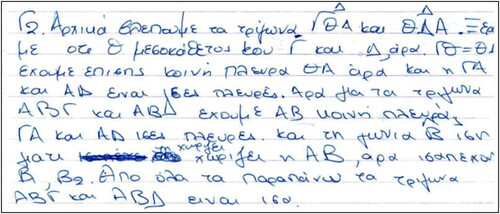 Γ2. Αρχικά βλέπουμε τα τρίγωνα ΓΘΔ και ΘΔΑ. Ξερα
με οτι Θ μεσοκάθετος του Γ και Δ, άρα. ΓΘ=ΘΔ
έχουμε επίσης κοινή πλευρά ΘΑ άρα και η ΓΑ
και ΑΔ είναι ίσες πλευρές. Αρα για τα τρίγωνα
ΑΒΓ και ΑΒΔ έχουμε ΑΒ κοινή πλευρά,
ΓΑ και ΑΔ ίσες πλευρές. και τη γωνία Β ίση
γιατι χωρίζει η ΑΒ, άρα
Β, Β2. Απο όλα τα παραπάνω τα τρίγωνα
ΑΒΓ και ΑΒΔ ειναι ίσα.